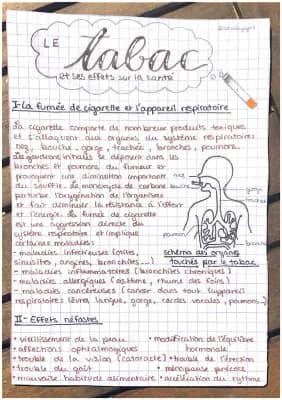 LE
tabac
et ses effets sur la santé
I- La fumée de cigarette et l'appareil respiratoire
La cigarette comporte de nombreux produits toxiques
et s'attaquent aux organes du système respiratoire:
nez, bouche, gorge, trachée, bronches, poumons.
Les goudrons inhalés se déposent dans les
bronches et poumons du fumeur et
provoquent une diminution importante
du souffle. Le monoxyde de carbone
perturbe l'oxygénation de l'organisme
et fait diminuer la résistance à l'effort
et l'énergie. La fumée de cigarette
est une agression directe du
système respiratoire et implique
certaines maladies:
- maladies infectieuses (otites,
sinusites, angines, bronchites ...)
- maladies inflammatoires (bronchites chroniques)
- maladies allergiques (asthme, rhume des foins)
- maladies cancéreuses (cancer dans tout l'appareil
respiratoire: lèvres, langue, gorge, cordes vocales, poumons...)
nez
bouche
gorge
trachée
bronches
poumon
schéma des organes
touchés par le tabac
II- Effets néfastes
• vieillissement de la peau
• affections ophtalmologiques
• trouble de la vision (cataracte)
• trouble du goût
• mauvaise habitude alimentaire
• modification de l'équilibre
hormonale
• trouble de l'érection
• ménopause précoce
• accélération du rythme